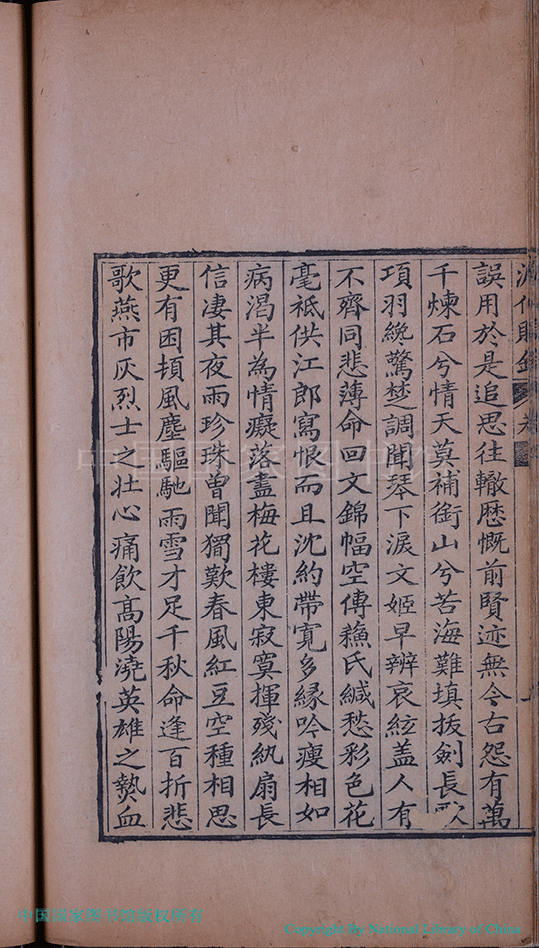 誤用於是追思往轍歷慨前賢迹無今古怨有萬
千煉石兮情天莫補銜山兮苦海難填拔劍長歌
項羽纔驚楚調聞琴下淚文姬早辨哀絃盖人有
不齊同悲薄命回文錦幅空傳蘓氏緘愁彩色花
毫祗供江郎寫恨而且沈約帶寬多緣吟瘦相如
病渴半為情癡落盡梅花樓東寂寞揮殘紈扇長
信淒其夜雨珍珠曾聞獨歎春風紅豆空種相思
更有困頓風塵驅馳雨雪才足千秋命逢百折悲
歌燕市灰烈士之壯心痛飲高陽澆英雄之熱血
中国国家图书馆
中国国家图书馆版权所有
Copyright by National Library of China